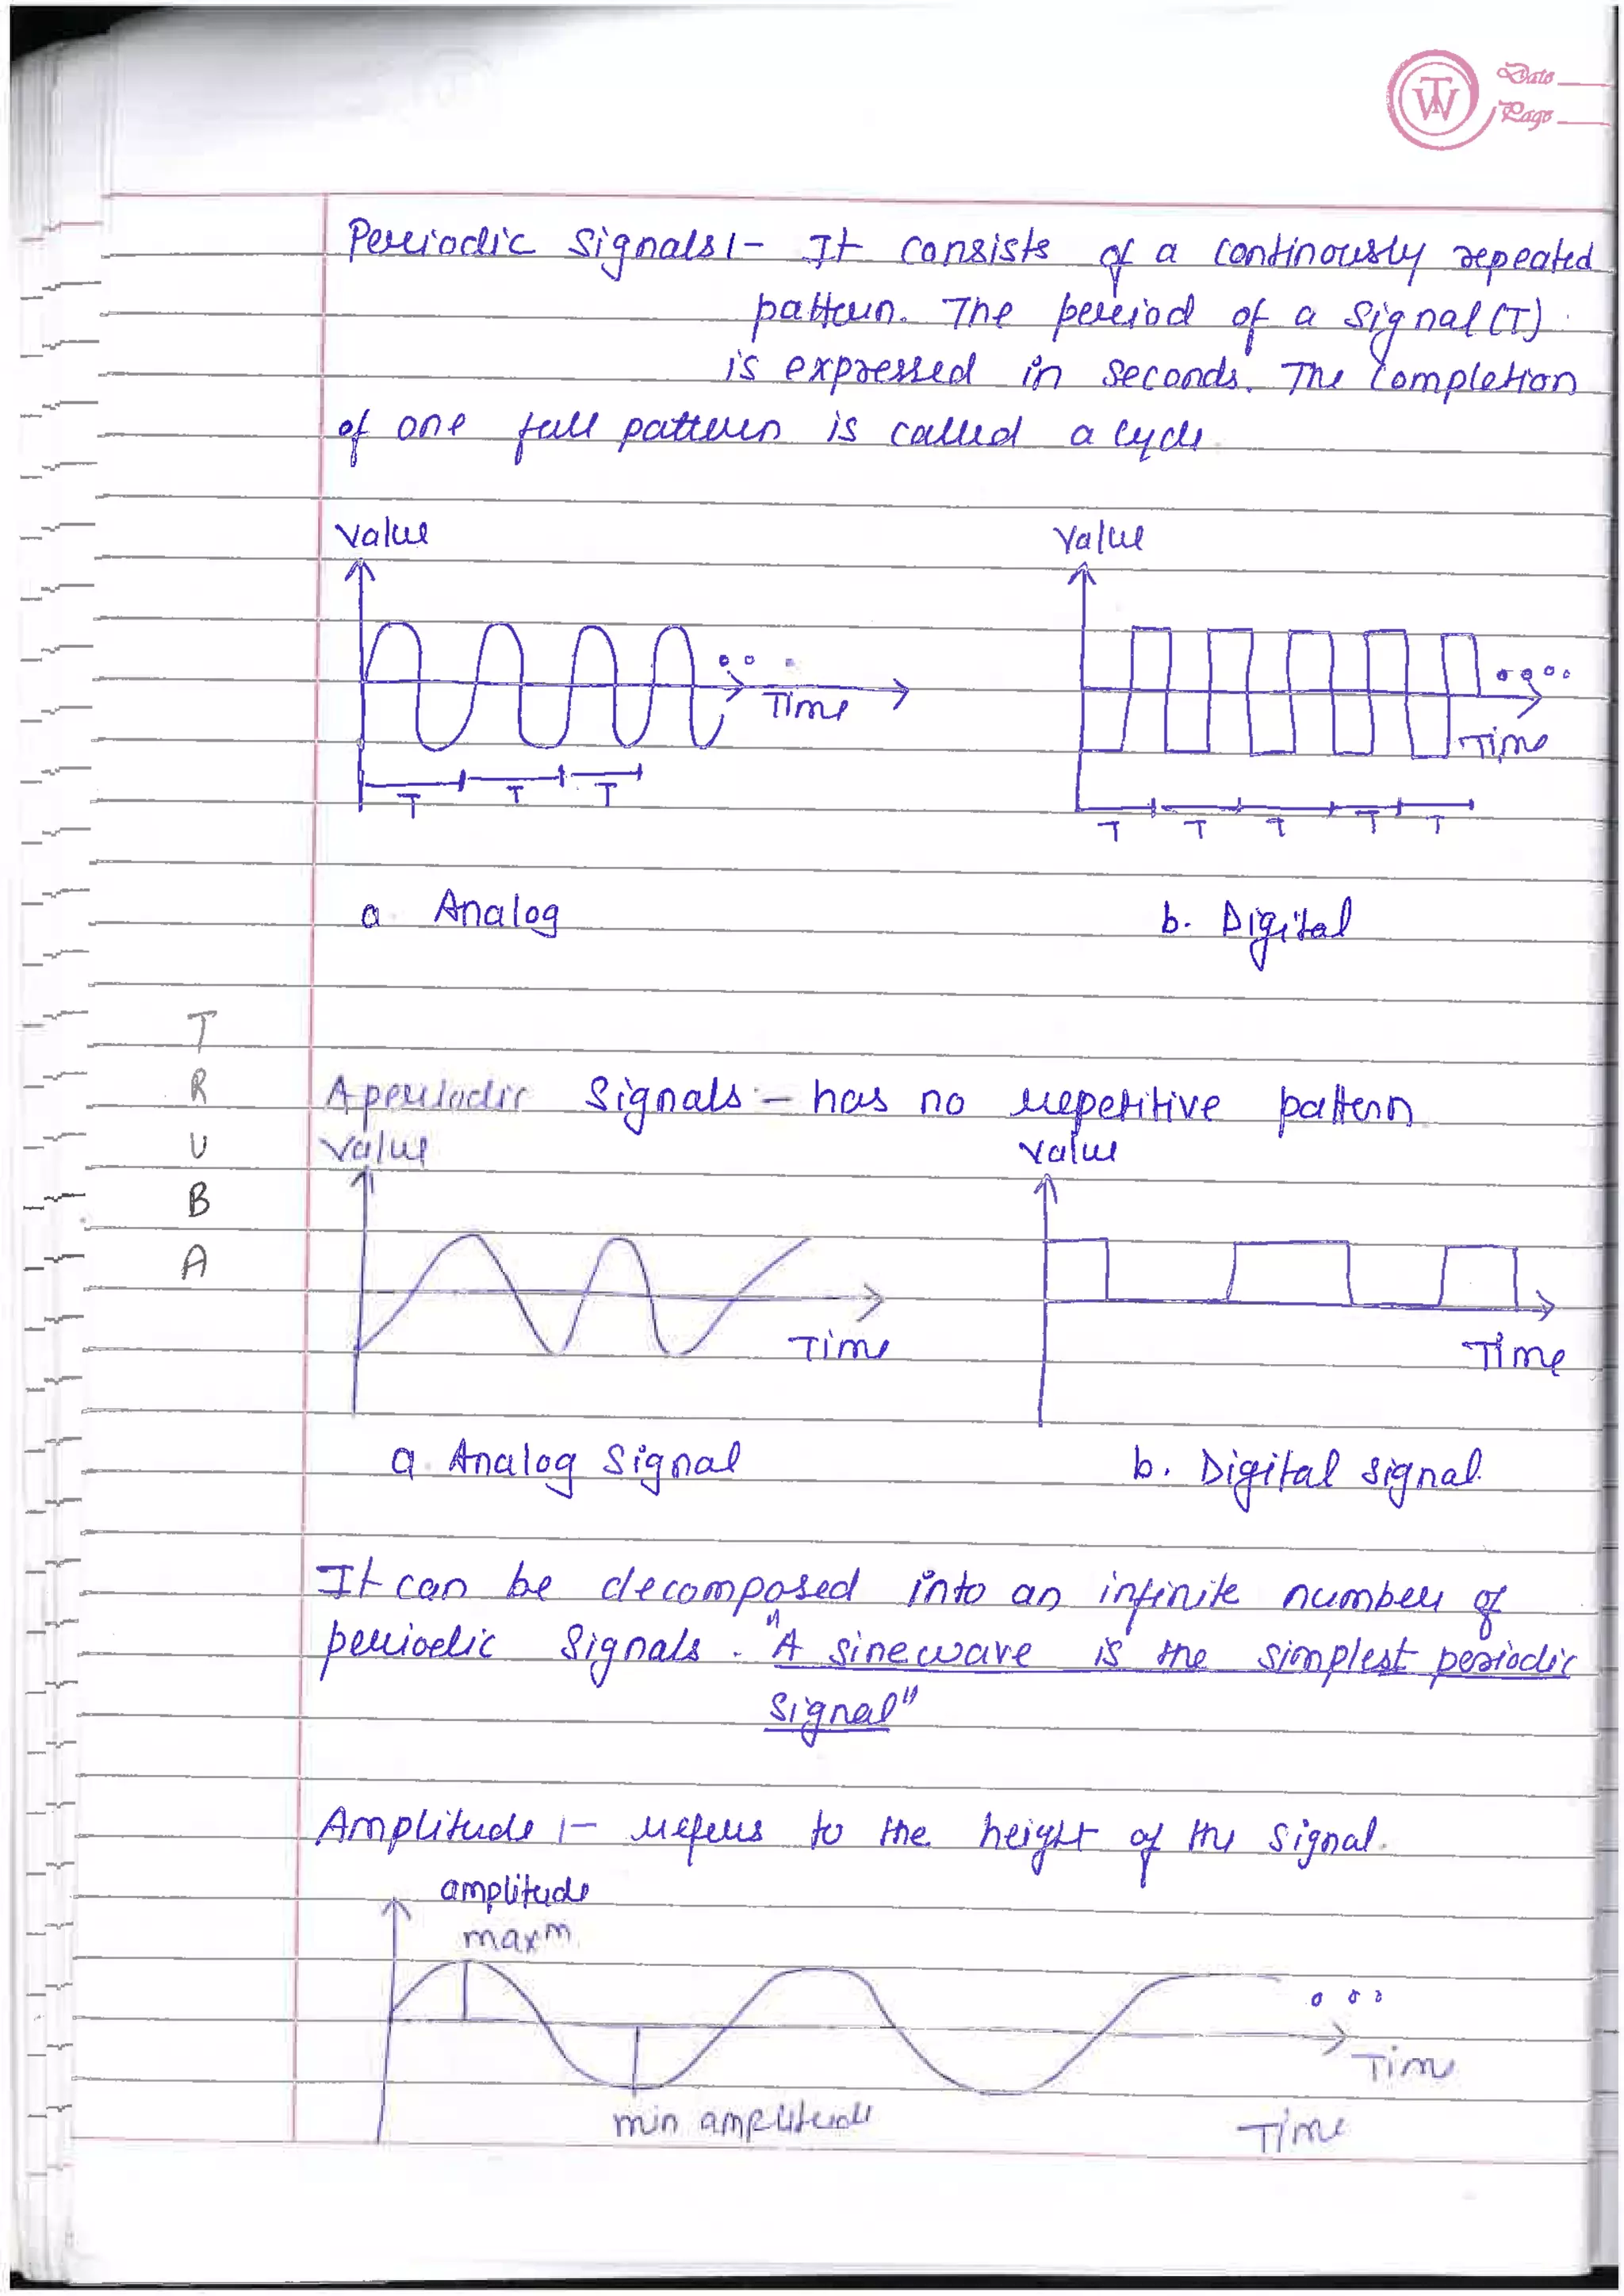 TW Date
Page
Periodic Signals :- It consists of a continously repeated
pattern. The period of a signal (T)
is expressed in seconds. The completion
of one full pattern is called a cycle
Value
Value
Time
Time
T T T
T T T T T
a. Analog
b. Digital
T
R
U
B
A
Aperiodic Signals - has no repetitive pattern
Value
Value
Time
Time
a. Analog Signal
b. Digital signal.
It can be decomposed into an infinite number of
periodic Signals. "A sinewave is the simplest periodic
Signal"
Amplitude :- refers to the height of the signal.
amplitude
maxm
Time
min amplitude
Time